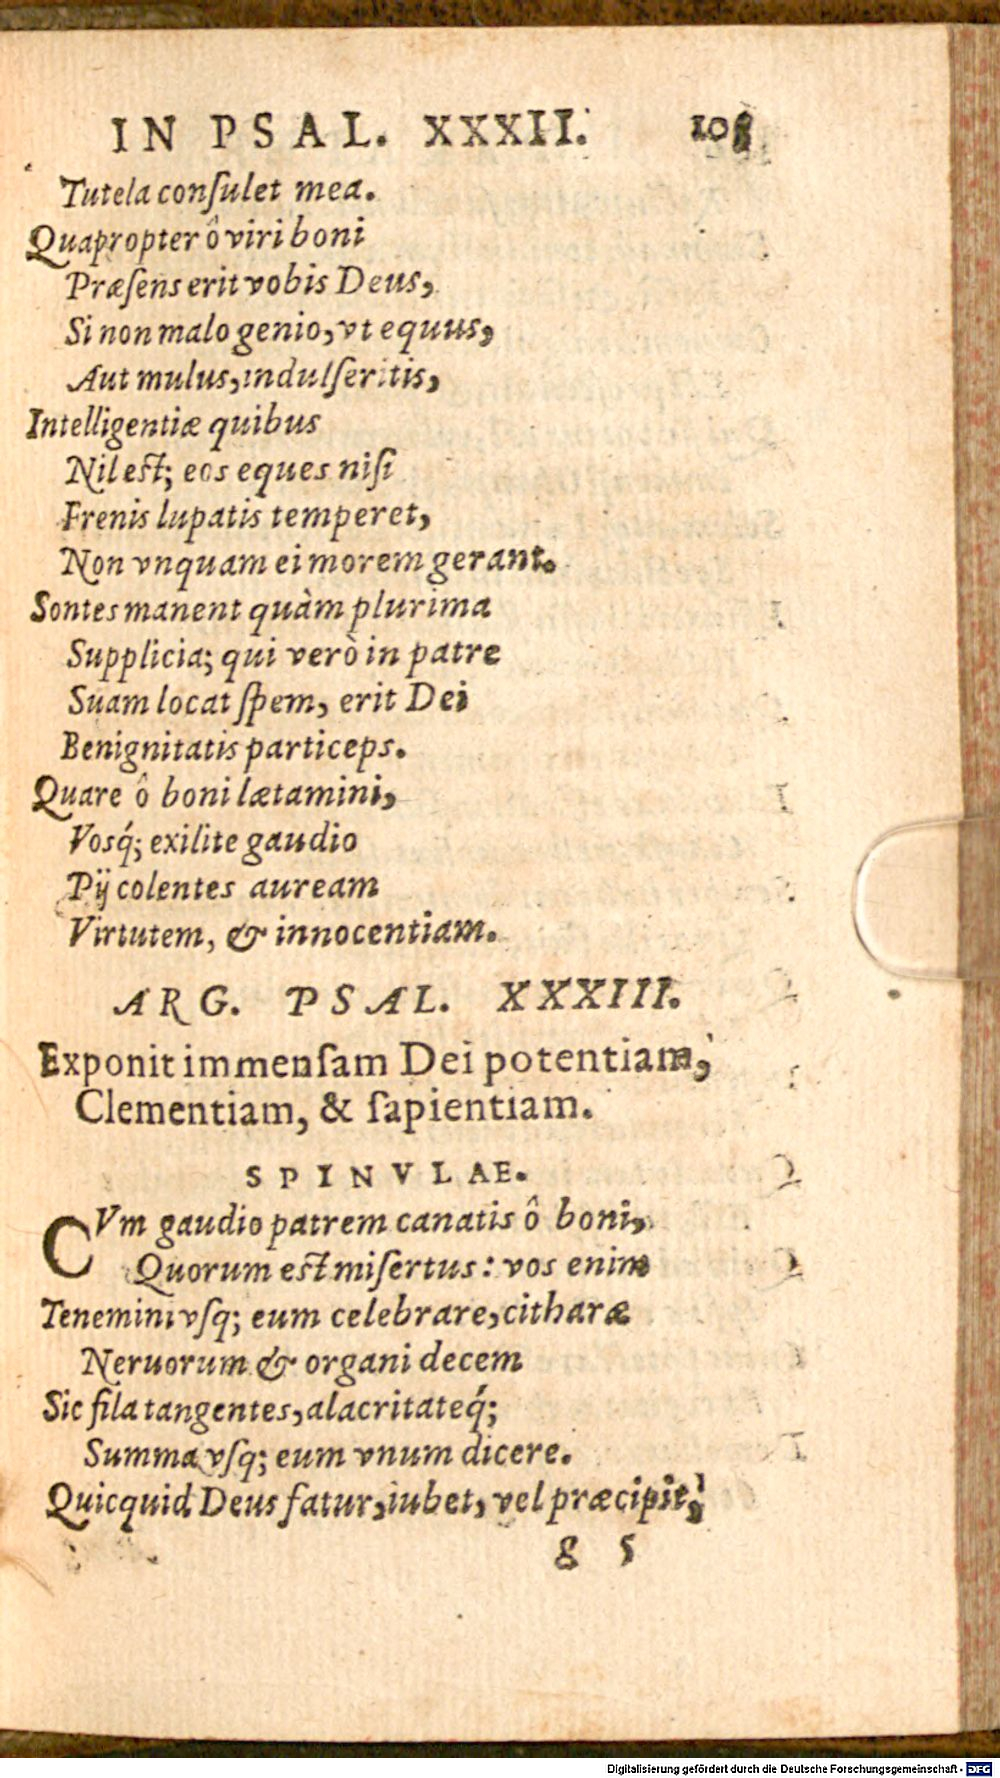 IN PSAL. XXXII. 105
Tutela conſulet mea.
Quapropter ô viri boni
Præſens erit vobis Deus,
Si non malo genio, vt equus,
Aut mulus, indulſeritis,
Intelligentiæ quibus
Nil eſt; eos eques niſi
Frenis lupatis temperet,
Non vnquam ei morem gerant.
Sontes manent quàm plurima
Supplicia; qui verò in patre
Suam locat ſpem, erit Dei
Benignitatis particeps.
Quare ô boni lætamini,
Vosq́; exilite gaudio
Pij colentes auream
Virtutem, & innocentiam.
ARG. PSAL. XXXIII.
Exponit immenſam Dei potentiam,
Clementiam, & ſapientiam.
SPINVLAE.
CVm gaudio patrem canatis ô boni,
Quorum eſt miſertus: vos enim
Tenemini vſq; eum celebrare, citharæ
Neruorum & organi decem
Sic fila tangentes, alacritateq́;
Summa vſq; eum vnum dicere.
Quicquid Deus fatur, iubet, vel præcipit,
g 5
Digitalisierung gefördert durch die Deutsche Forschungsgemeinschaft - DFG